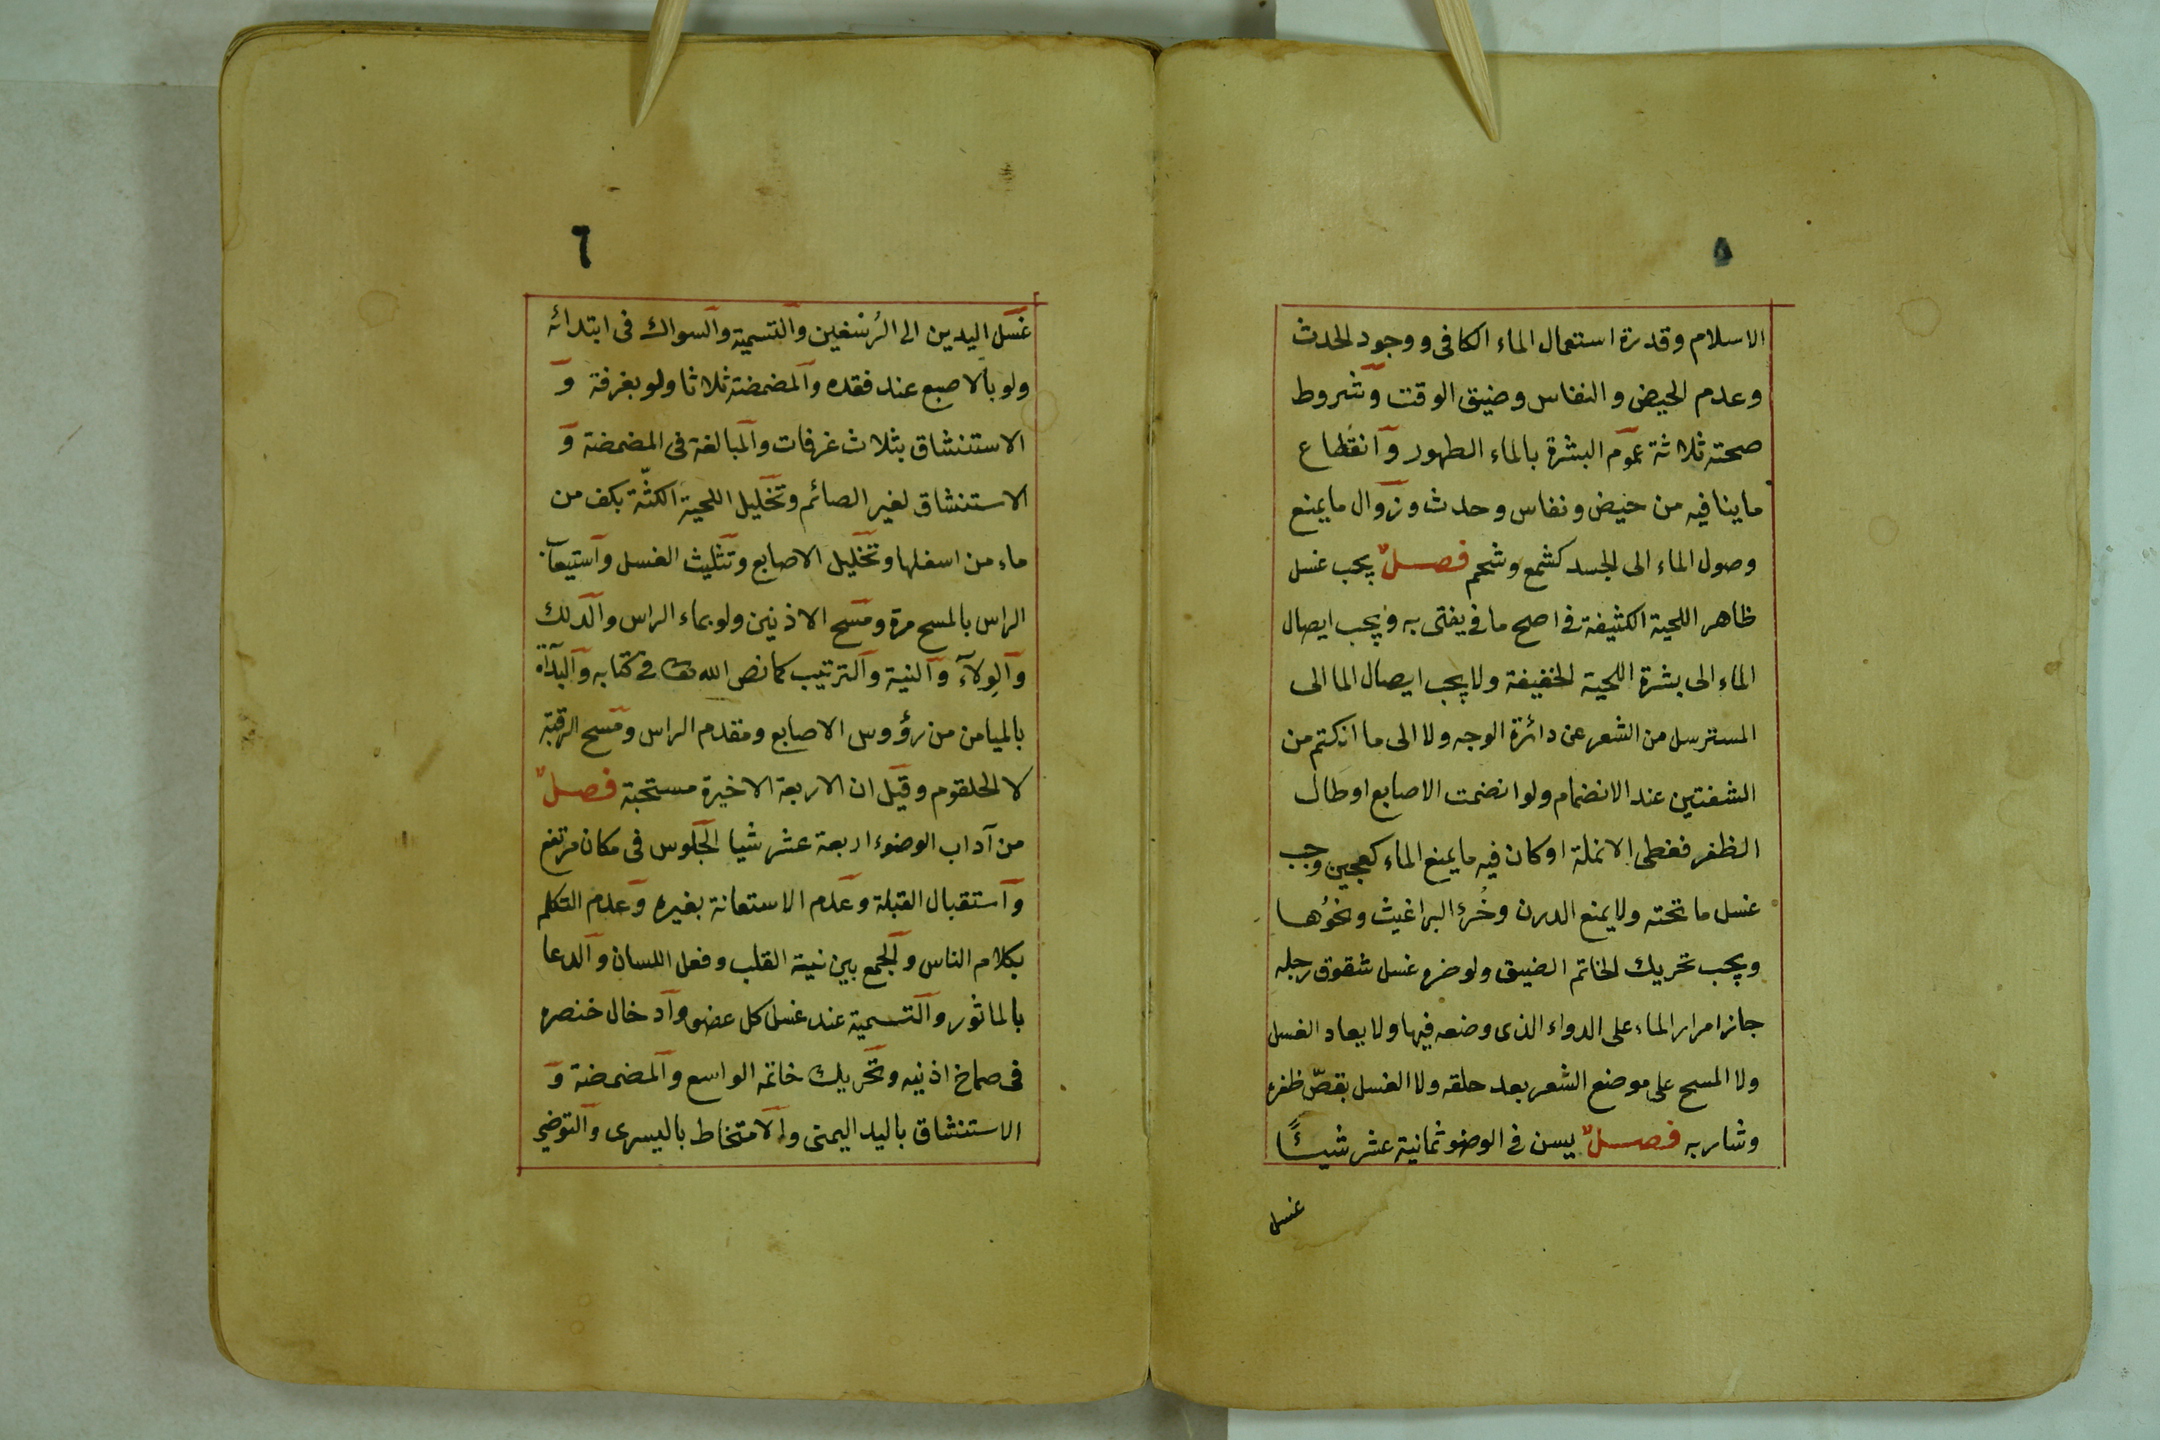 ٥
الاسلام وقدرة استعمال الماء الكافى ووجود الحدث
وعدم الحيض والنفاس وضيق الوقت وشروط
صحته ثلاثة عموم البشرة بالماء الطهور وانقطاع
ماينافيه من حيض ونفاس وحدث وزوال مايمنع
وصول الماء الى الجسد كشمع وشحم فصل يجب غسل
ظاهر اللحية الكثيفة فى اصح ما فى يفتى به ويجب ايصال
الماء الى بشرة اللحية الخفيفة ولا يجب ايصال الما الى
المسترسل من الشعر عن دائرة الوجه ولا الى ما انكتم من
الشفتين عند الانضمام ولو انضمت الاصابع او طال
الظفر فغطى الانملة او كان فيه مايمنع الماء كعجين وجب
غسل ما تحته ولا يمنع الدرن وخُرء البراغيث ونحوُها
ويجب تحريك الخاتم الضيق ولو ضره غسل شقوق رجله
جاز امرار الماء على الدواء الذى وضعه فيها ولا يعاد الغسل
ولا المسح على موضع الشعر بعد حلقه ولا الغسل بقصّ ظفره
وشاربه فصل يسن فى الوضو ثمانية عشر شيئًا
غسل
٦
غسل اليدين الى الرُسغين والتسمية والسواك فى ابتدائه
ولو بالاصبع عند فقده والمضمضة ثلاثا ولو بغرفة و
الاستنشاق بثلاث غرفات والمبالغة فى المضمضة و
الاستنشاق لغير الصائم وتخليل اللحية الكثّة بكف من
ماء من اسفلها وتخليل الاصابع وتثليث الغسل واستيعاب
الراس بالمسح مرة ومسح الاذنين ولو بماء الراس والدلك
والولاء والنية والترتيب كما نص الله تعا فى كتابه والبداة
بالميامن من رؤوس الاصابع ومقدم الراس ومسح الرقبة
لا الحلقوم وقيل ان الاربعة الاخيرة مستحبة فصل
من آداب الوضوء اربعة عشر شيا الجلوس فى مكان مرتفع
واستقبال القبلة وعدم الاستعانة بغيره وعدم التكلم
بكلام الناس والجمع بين نية القلب وفعل اللسان والدعا
بالماثور والتسمية عند غسل كل عضو وادخال خنصره
فى صماخ اذنيه وتحريك خاتمه الواسع والمضمضة و
الاستنشاق باليد اليمنى والامتخاط باليسرى والتوضي